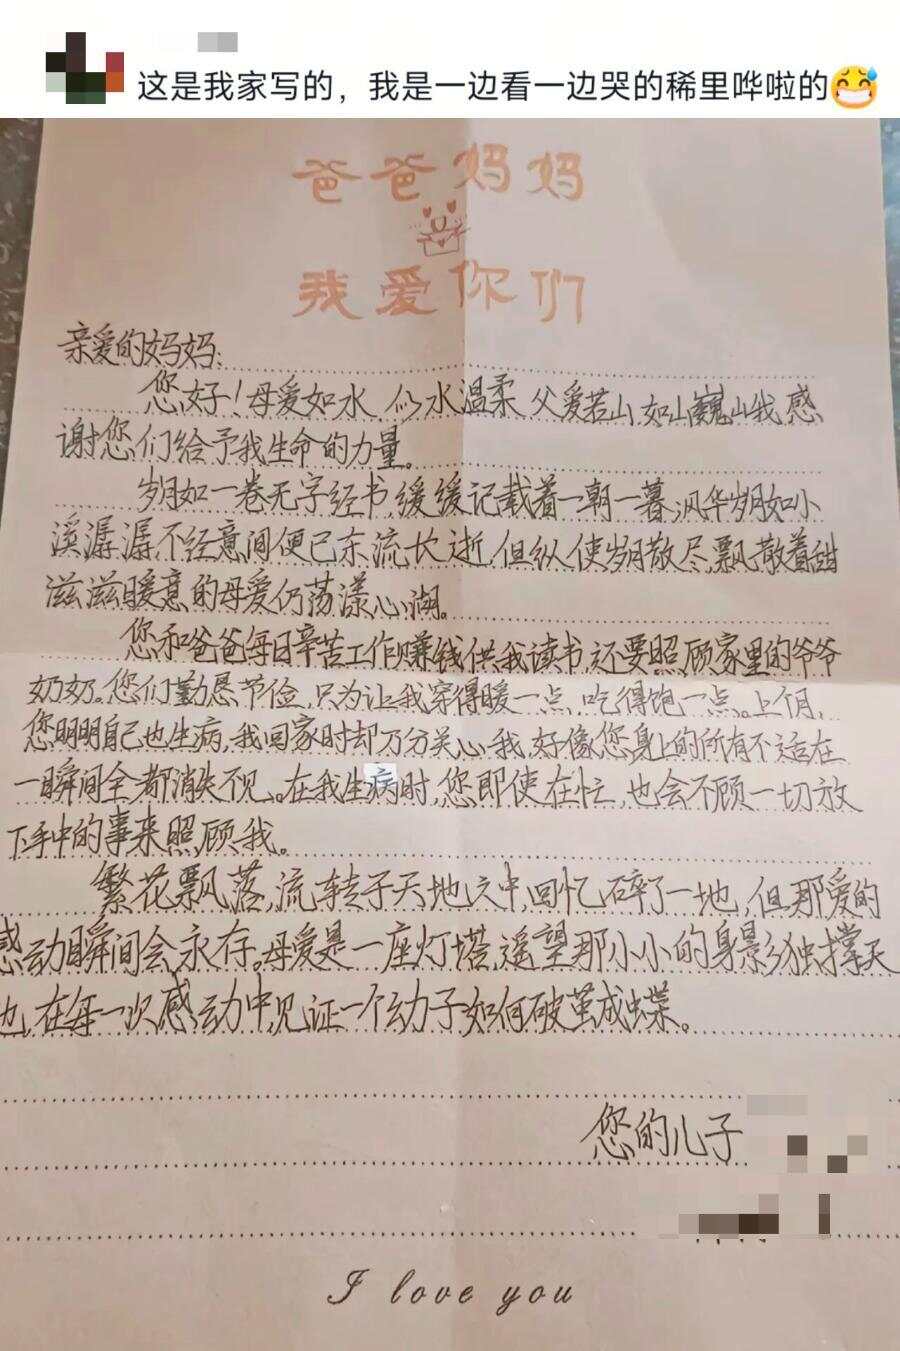 这是我家写的，我是一边看一边哭的稀里哗啦的
爸爸妈妈
我爱你们
亲爱的妈妈：
您好！母爱如水，似水温柔，父爱若山，如山巍峨，感
谢您们给予我生命的力量。
岁月如一卷无字经书，缓缓记载着一朝一暮，风华岁月如小
溪潺潺，不经意间便已东流长逝，但纵使岁月散尽，飘散着甜
滋滋暖意的母爱仍荡漾心湖。
您和爸爸每日辛苦工作赚钱供我读书，还要照顾家里的爷爷
奶奶。您们勤恳节俭，只为让我穿得暖一点，吃得饱一点。上个月，
您明明自己也生病，我回家时却万分关心我，好像您身上的所有不适在
一瞬间全都消失不见。在我生病时，您即使在忙，也会不顾一切放
下手中的事来照顾我。
繁花飘落，流转于天地之中，回忆碎了一地，但那爱的
感动瞬间会永存。母爱是一座灯塔，遥望那小小的身影独撑天
地，在每一次感动中，见证一个幼子如何破茧成蝶。
您的儿子
I love you